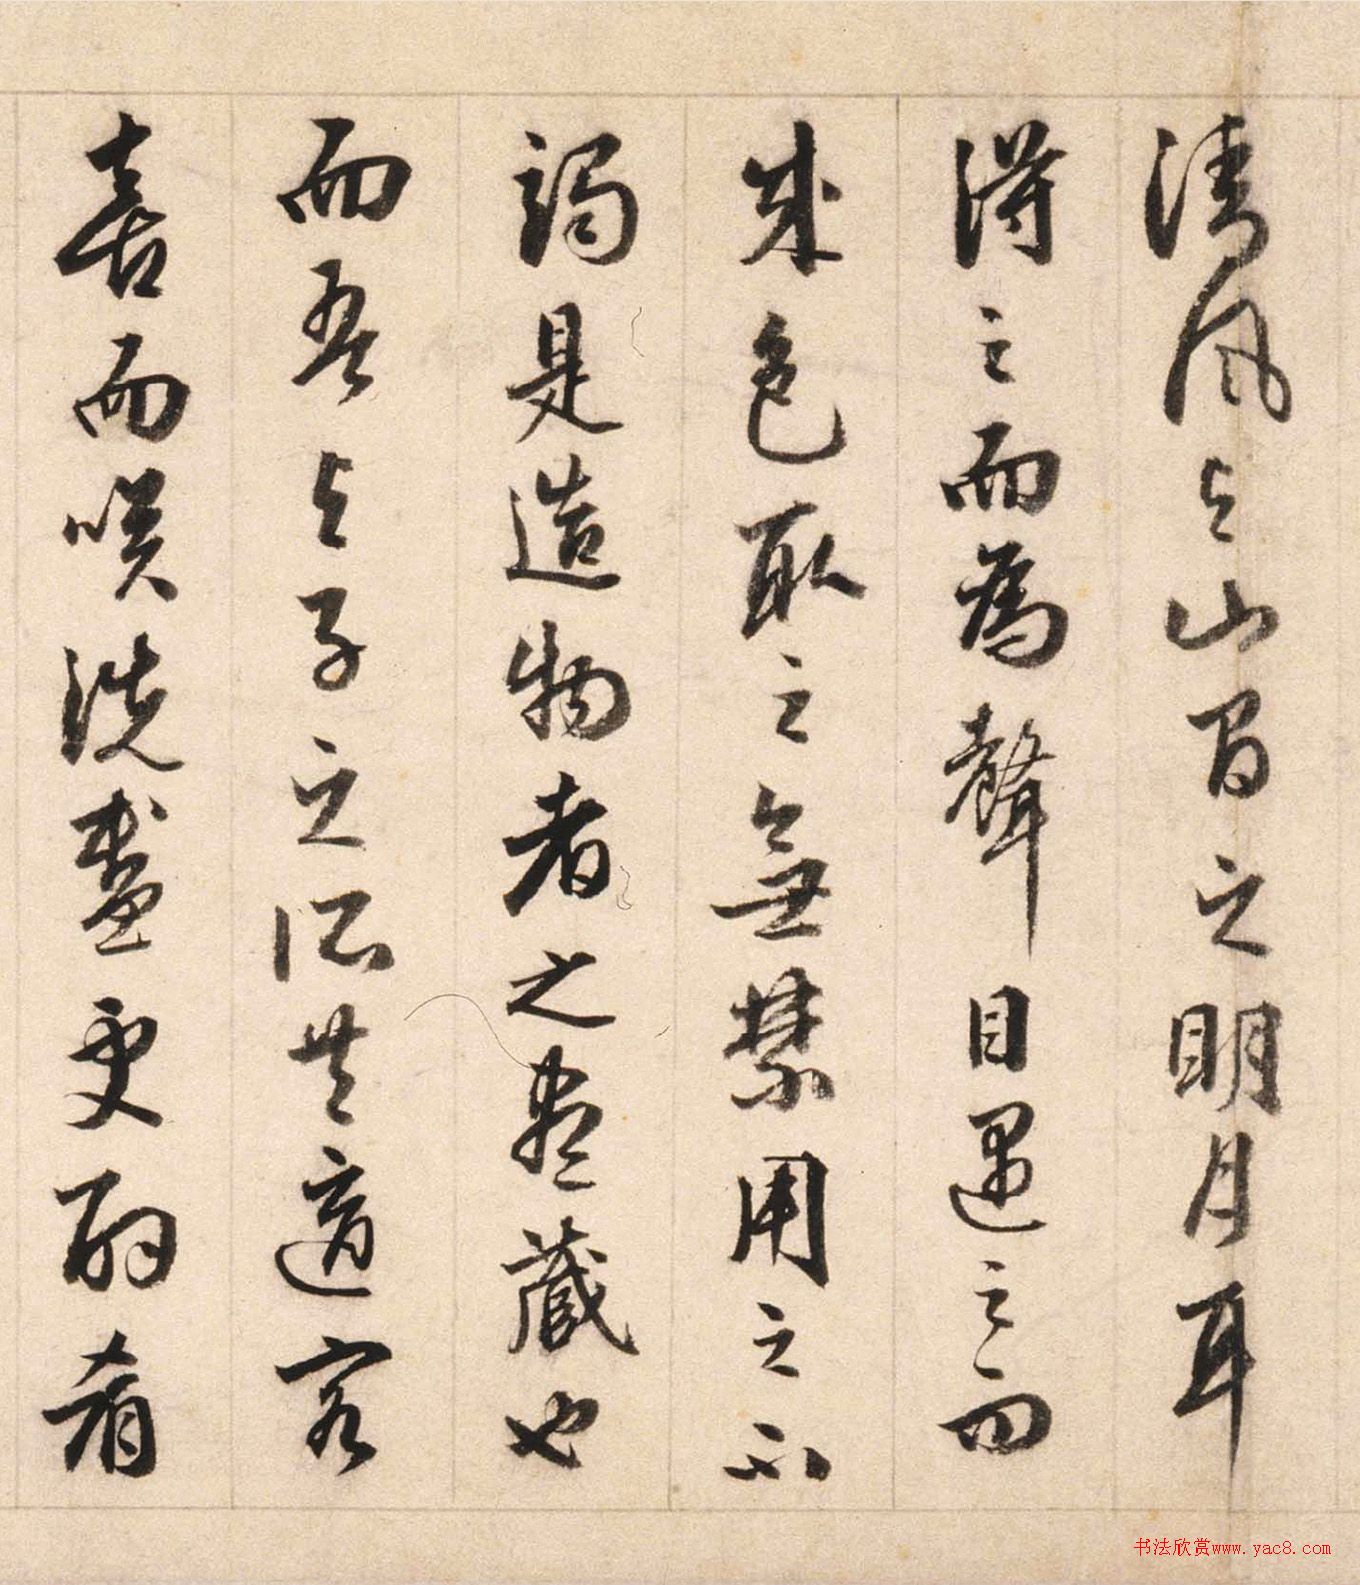 清風与山間之明月耳
得之而為聲目遇之而
成色取之無禁用之不
竭是造物者之盡藏也
而吾与子之所共適客
喜而咲洗盞更酌肴
书法欣赏www.yac8.com